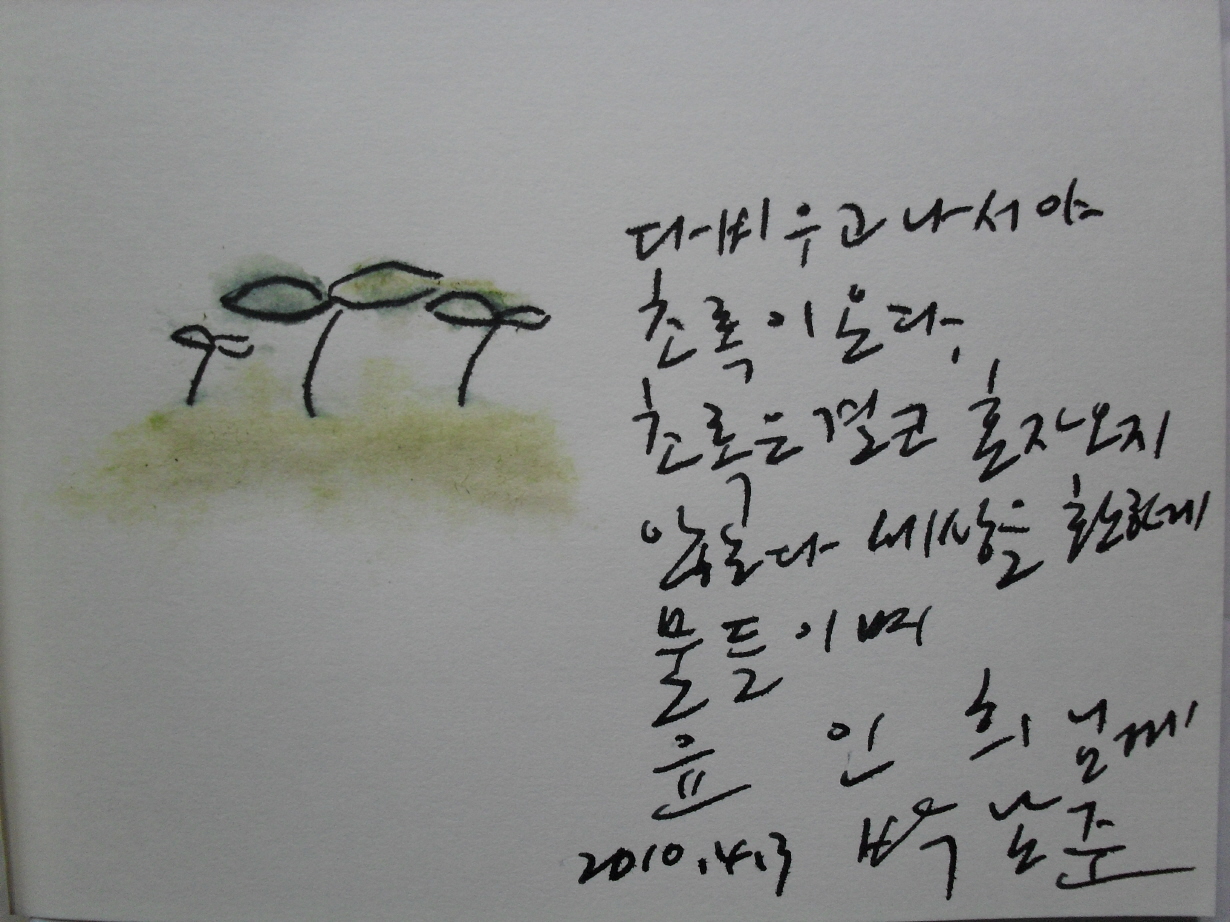 다 비우고 나서야
초록이 온다,
초록은 결코 혼자 오지
않는다 세상을 환하게
물들이며
윤 인 희 님께
2010.4.3 박남준